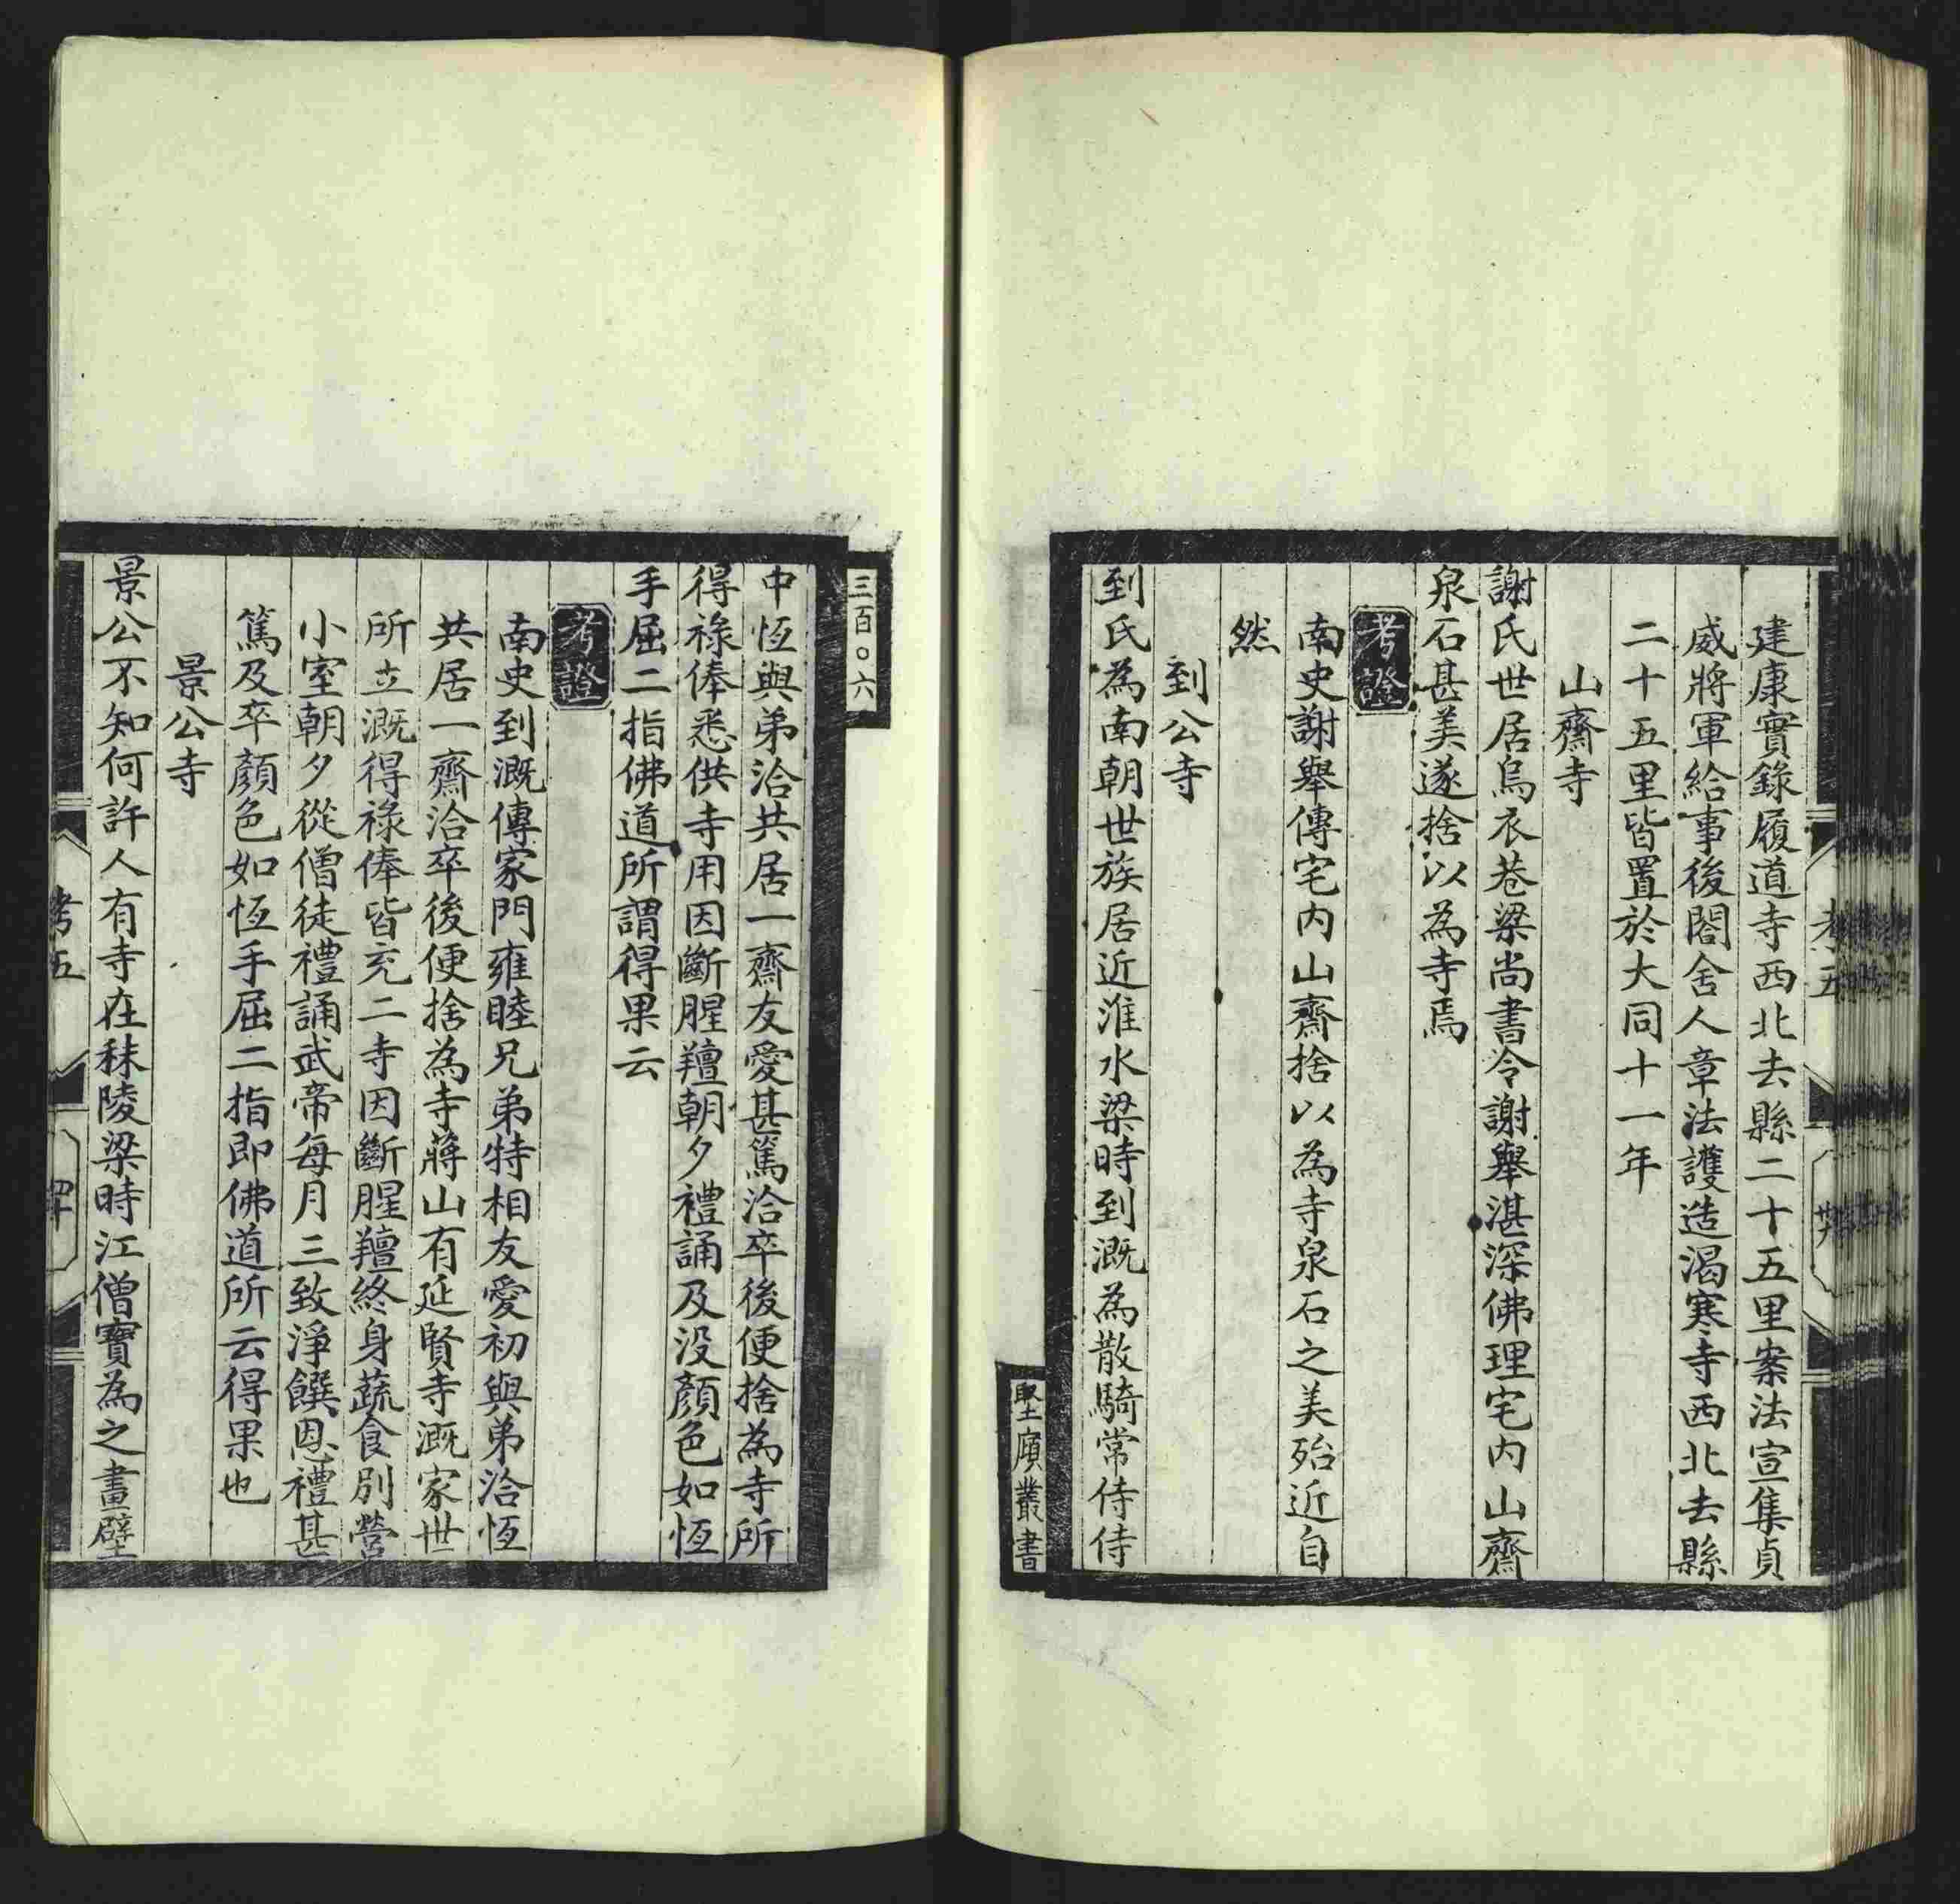 建康實錄履道寺西北去縣二十五里案法宣集貞
威將軍給事後閤舍人章法護造渴寒寺西北去縣
二十五里皆置於大同十一年
山齋寺
謝氏世居烏衣巷梁尚書令謝舉湛深佛理宅内山齋
泉石甚美遂捨以為寺焉
考證
南史謝舉傳宅内山齋捨以為寺泉石之美殆近自
然
到公寺
到氏為南朝世族居近淮水梁時到溉為散騎常侍侍
堅廎叢書
三百〇六
中恆與弟洽共居一齋友愛甚篤洽卒後便捨為寺所
得祿俸悉供寺用因斷腥羶朝夕禮誦及没顏色如恆
手屈二指佛道所謂得果云
考證
南史到溉傳家門雍睦兄弟特相友愛初與弟洽恆
共居一齋洽卒後便捨為寺蔣山有延賢寺溉家世
所立溉得祿俸皆充二寺因斷腥羶終身蔬食別營
小室朝夕從僧徒禮誦武帝每月三致淨饌恩禮甚
篤及卒顏色如恆手屈二指即佛道所云得果也
景公寺
景公不知何許人有寺在秣陵梁時江僧寶為之畫壁
考五